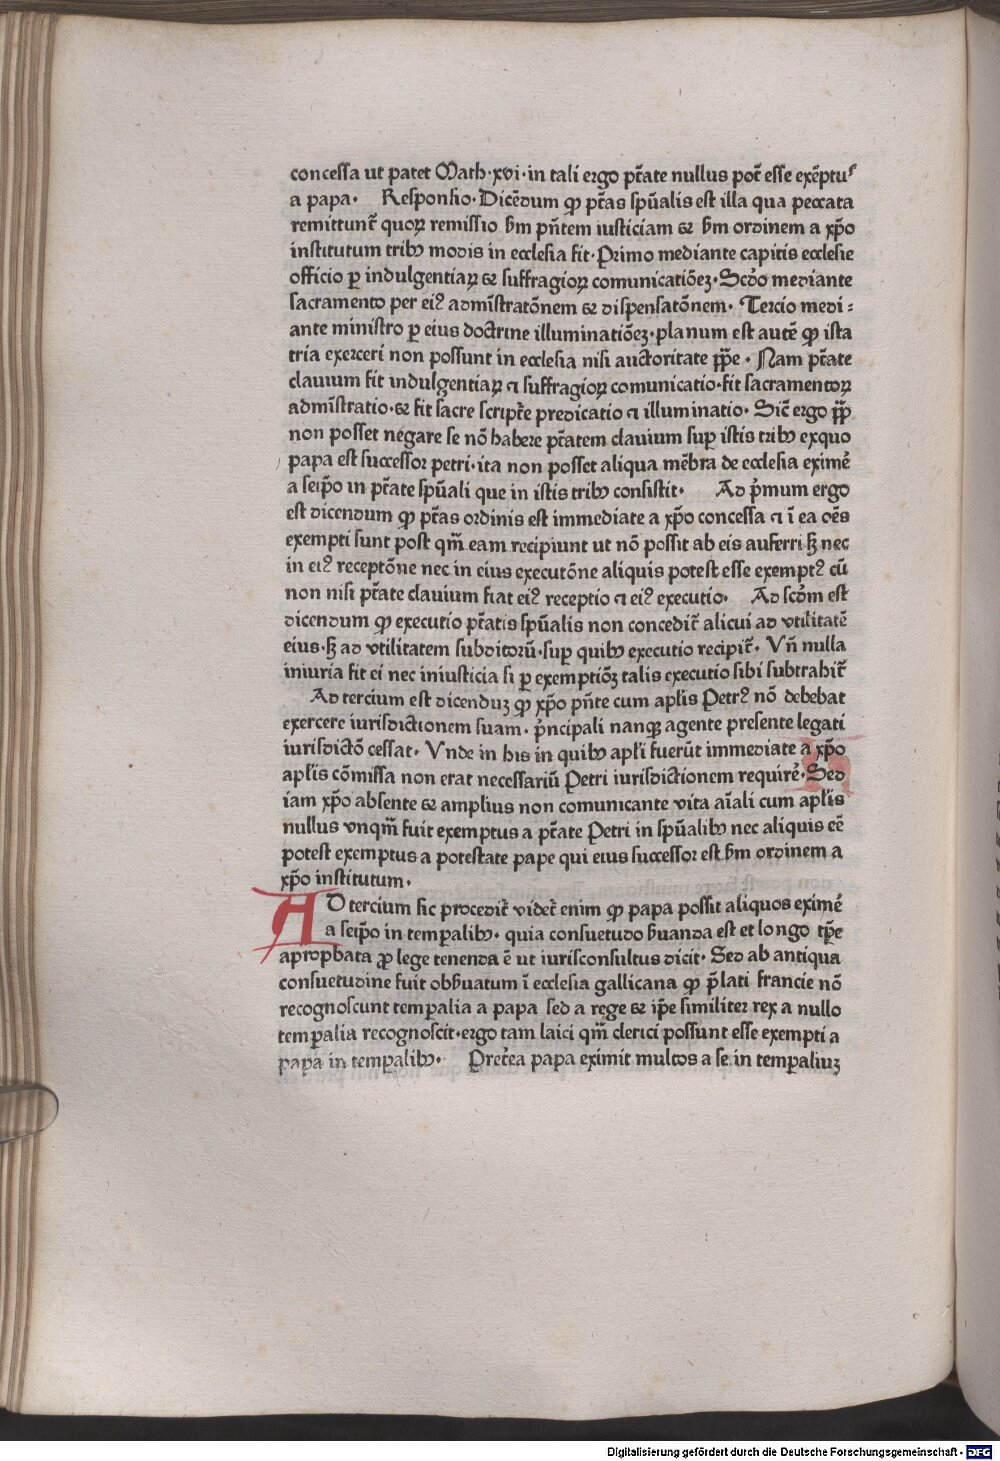 concessa ut patet Math·xvi·in tali ergo ptāte nullus pot̄ esse exēptuˢ
a papa· Responsio·Dicēdum ꝙ ptās spūalis est illa qua peccata
remittunt̄ quoꝝ remissio ẜm pn̄tem iusticiam ⁊ ẜm ordinem a xp̄o
institutum tribꝰ modis in ecclesia fit·Primo mediante capitis ecclesie
officio ꝑ indulgentiaꝝ ⁊ suffragioꝝ comunicatiōeꝫ·Scd̄o mediante
sacramento per eiꝰ admīstratōnem ⁊ dispensatōnem· Tercio medi⸗
ante ministro ꝑ eius doctrine illuminatiōeꝫ·planum est autē ꝙ ista
tria exerceri non possunt in ecclesia nisi auctoritate pp̄e· Nam ptāte
clauium fit indulgentiaꝝ ⁊ suffragioꝝ comunicatio·fit sacramentoꝝ
admīstratio·⁊ fit sacre scriptᷓe predicatio ⁊ illuminatio· Sic̄ ergo pp̄
non posset negare se nō habere ptātem clauium suꝑ istis tribꝰ exquo
papa est successor petri·ita non posset aliqua mēbra de ecclesia eximē
a seip̄o in ptāte spūali que in istis tribꝰ consistit· Ad p̄mum ergo
est dicendum ꝙ ptās ordinis est immediate a xp̄o concessa ⁊ ī ea oēs
exempti sunt post qm̄ eam recipiunt ut nō possit ab eis auferri·ꝫ nec
in eiꝰ receptōne nec in eius executōne aliquis potest esse exemptꝰ cū
non nisi ptāte clauium fiat eiꝰ receptio ⁊ eiꝰ executio· Ad scd̄m est
dicendum ꝙ executio ptātis spūalis non concedit̄ alicui ad vtilitatē
eius·ꝫ ad vtilitatem subditorū·suꝑ quibꝰ executio recipit̄· Vn̄ nulla
iniuria fit ei nec iniusticia si ꝑ exemptiōꝫ talis executio sibi subtrahit̄
Ad tercium est dicenduꝫ ꝙ xp̄o pn̄te cum aplīs Petrꝰ nō debebat
exercere iurisdictionem suam· p̄ncipali nanqꝫ agente presente legati
iurisdictō cessat· Vnde in his in quibꝰ aplī fuerūt immediate a xp̄o
aplīs cōmissa non erat necessariū Petri iurisdictionem requirē·Sed
iam xp̄o absente ⁊ amplius non comunicante vita aīali cum aplīs
nullus vnqm̄ fuit exemptus a ptāte Petri in spūalibꝰ nec aliquis eē
potest exemptus a potestate pape qui eius successor est ẜm ordinem a
xp̄o institutum·
AD tercium sic procedit̄ videt̄ enim ꝙ papa possit aliquos eximē
a seip̄o in temꝑalibꝰ· quia consuetudo ẜuanda est et longo tp̄e
apropbata ꝓ lege tenenda ē ut iurisconsultus dicit· Sed ab antiqua
consuetudine fuit obẜuatum ī ecclesia gallicana ꝙ p̄lati francie nō
recognoscunt temꝑalia a papa sed a rege ⁊ ip̄e similiter rex a nullo
temꝑalia recognoscit·ergo tam laici qm̄ clerici possunt esse exempti a
papa in temꝑalibꝰ· Pretēa papa eximit multos a se in temꝑaliuꝫ
Digitalisierung gefördert durch die Deutsche Forschungsgemeinschaft - DFG